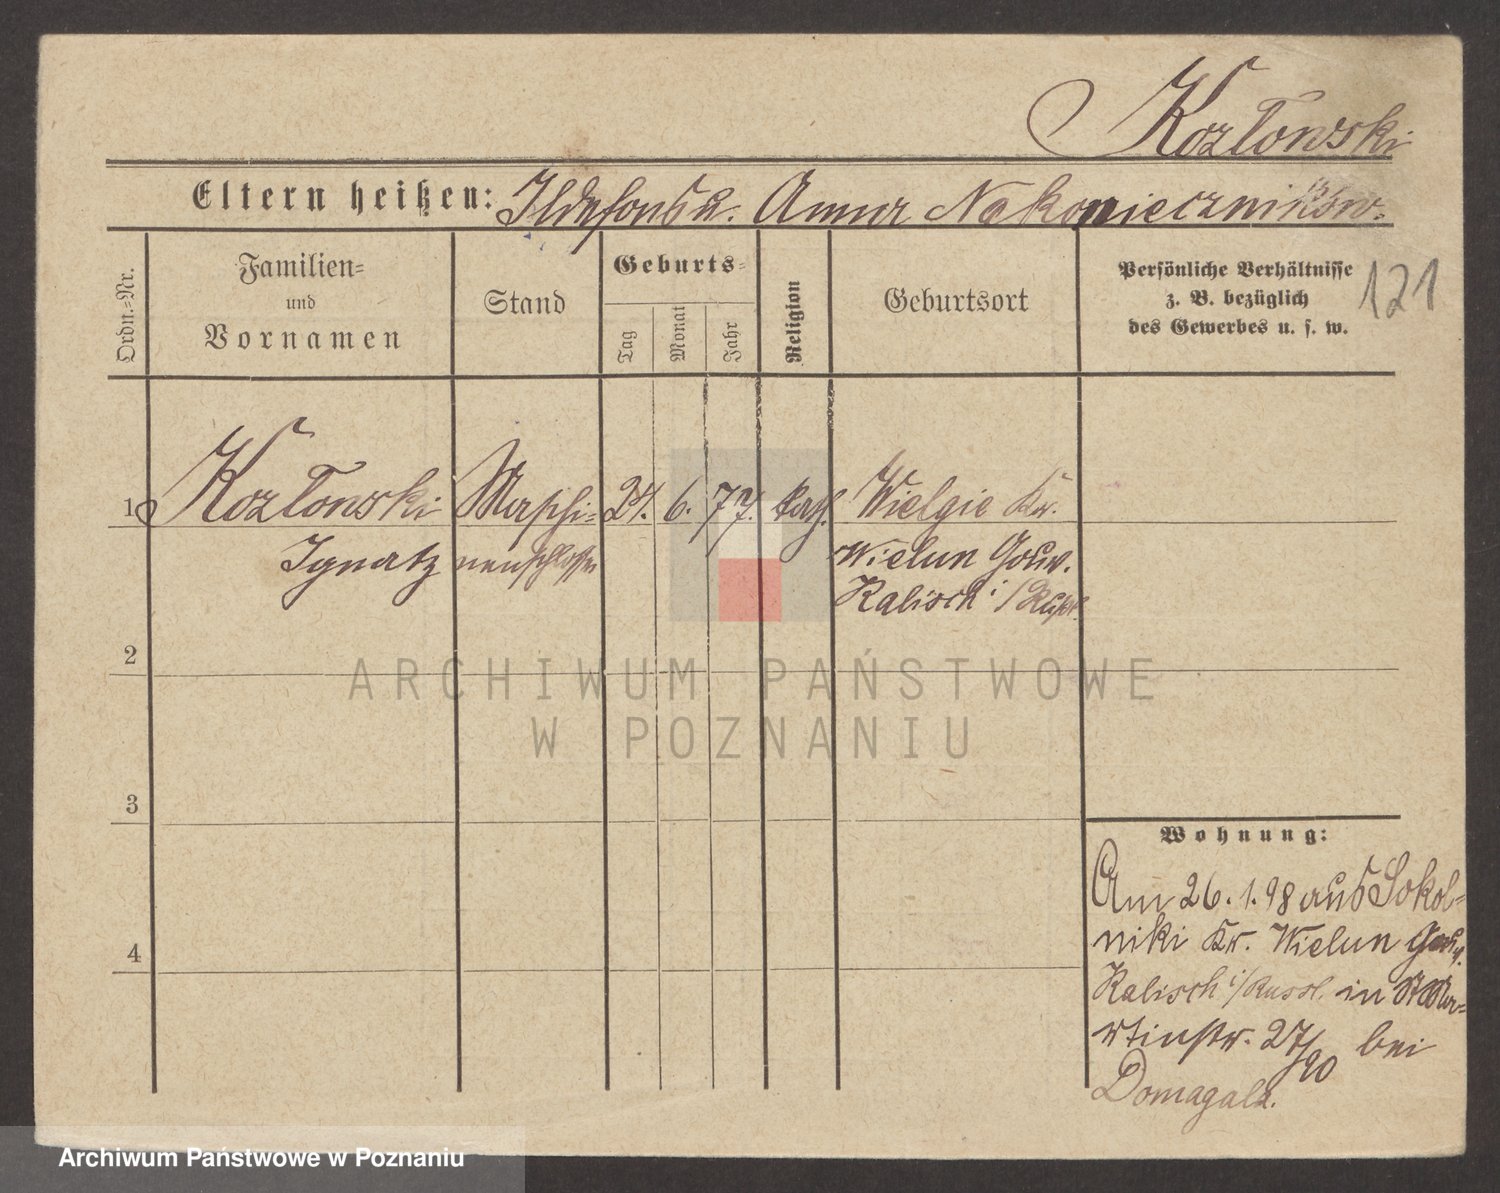 Kozłowski
Eltern heißen: Ildefons u. Anna Nakonieczników.
Ordn.=Nr.
Familien=
und
Vornamen
Stand
Geburts=
Tag
Monat
Jahr
Religion
Geburtsort
Persönliche Verhältnisse
z. B. bezüglich
des Gewerbes u. s. w.
121
1 Kozłowski Maschi= 24. 6. 77. kath. Wielgie Kr.
Ignatz nenschlosser Wielun Gouv.
Kalisch i/Russl.
2
3
4
Wohnung:
Am 26.1.98 aus Sokol=
niki Kr. Wielun Gouv.
Kalisch i/Russl. in St Mar=
tinstr. 27/ bei
Domagala.
ARCHIWUM PAŃSTWOWE
W POZNANIU
Archiwum Państwowe w Poznaniu